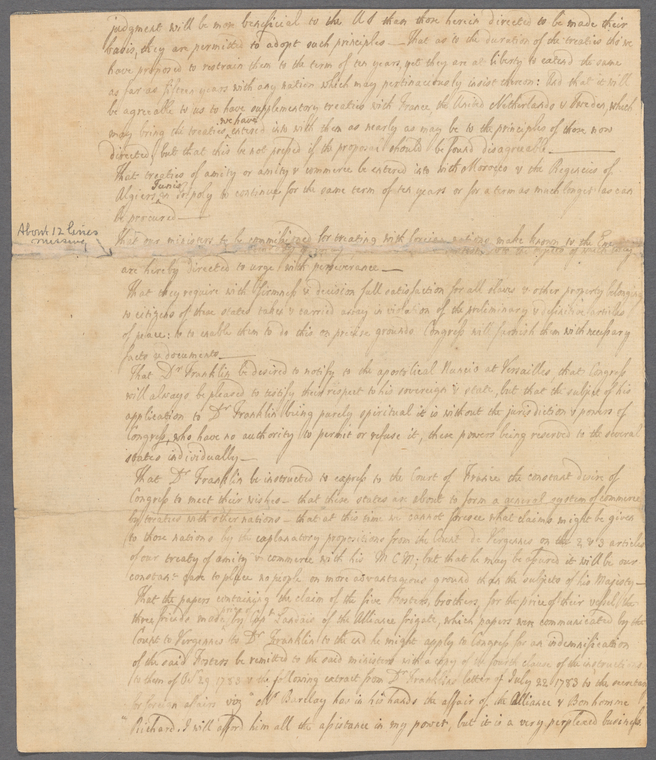 judgment will be more beneficial to the US than those herein directed to be made their
basis, they are permitted to adopt such principles — That as to the duration of the treaties tho' we
have proposed to restrain them to the term of ten years, yet they are at liberty to extend the same
as far as fifteen years with any nation which may pertinaciously insist thereon: And that it will
be agreeable to us to have supplementary treaties with France, the United Netherlands & Sweden, which
may bring the treaties we have entered into with them as nearly as may be to the principles of those now
directed; but that this be not pressed if the proposal should be found disagreeable.
That treaties of amity or amity & commerce be entered into with Morocco & the Regencies of
Algiers, Tunis & Tripoly to continue for the same term of ten years or for a term as much longer as can
be procured —
About 12 lines
missing
That our ministers to be commissioned for treating with foreign nations make known to the
are hereby directed to urge with perseverance —
That they require with firmness & decision full satisfaction for all slaves & other property belonging
to citizens of these states taken & carried away in violation of the preliminary & definitive articles
of peace: & to enable them to do this on precise grounds Congress will furnish them with necessary
facts & documents —
That Dr Franklin be desired to notify to the apostolical Nuncio at Versailles, that Congress
will always be pleased to testify their respect to his sovereign & state, but that the subject of his
application to Dr Franklin being purely spiritual it is without the jurisdiction & powers of
Congress, who have no authority to permit or refuse it, these powers being reserved to the several
states individually —
That Dr Franklin be instructed to express to the Court of France the constant desire of
Congress to meet their wishes — that these states are about to form a general system of commerce
by treaties with other nations — that at this time we cannot foresee what claims might be given
to those nations by the explanatory propositions from the Count de Vergennes on the 2 & 3 articles
of our treaty of amity & commerce with his M C M; but that he may be assured it will be our
constant care to place no people on more advantageous ground than the subjects of his Majesty —
That the papers containing the claim of the five Hosters, brothers, for the price of their vessel, the
three friends made prize of by Capt Landais of the Alliance frigate, which papers were communicated by the
Count de Vergennes to Dr Franklin to the end he might apply to Congress for an indemnification
of the said Hosters be remitted to the said ministers with a copy of the fourth clause of the instructions
to them of Oct 29, 1783 & the following extract from Dr Franklins letter of July 22 1783 to the secretary
for foreign affairs viz "Mr Barclay has in his hands the affair of the Alliance & Bonhomme
"Richard. I will afford him all the assistance in my power, but it is a very perplexed business.